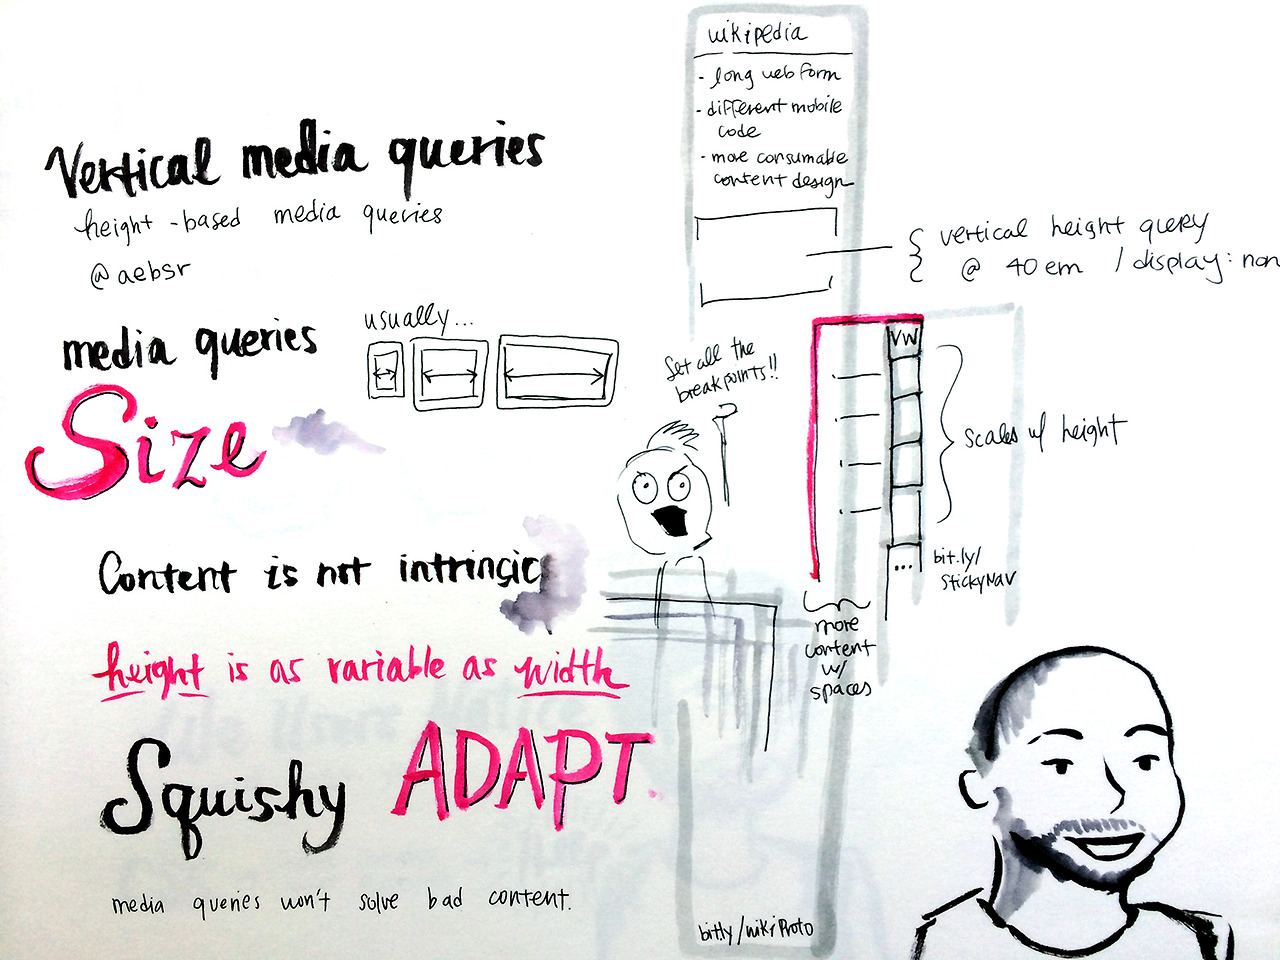 Vertical media queries
height-based media queries
@aebsr
media queries
usually...
Size
Content is not intrinsic
height is as variable as width
Squishy ADAPT.
media queries won't solve bad content.
wikipedia
- long web form
- different mobile
code
- more consumable
content design
vertical height query
@ 40em / display: non
Set all the
breakpoints!!
VW
scales w/ height
...
bit.ly/
StickyNav
more
content
w/
spaces
bit.ly/wikiProto